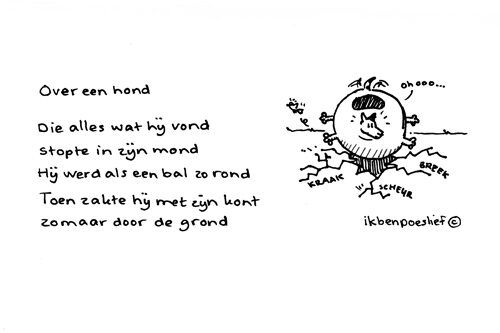 Over een hond
Die alles wat hij vond
stopte in zijn mond
Hij werd als een bal zo rond
Toen zakte hij met zijn kont
zomaar door de grond
oh ooo...
KRAAK
SCHEUR
BREEK
ikbenpoeslief ©